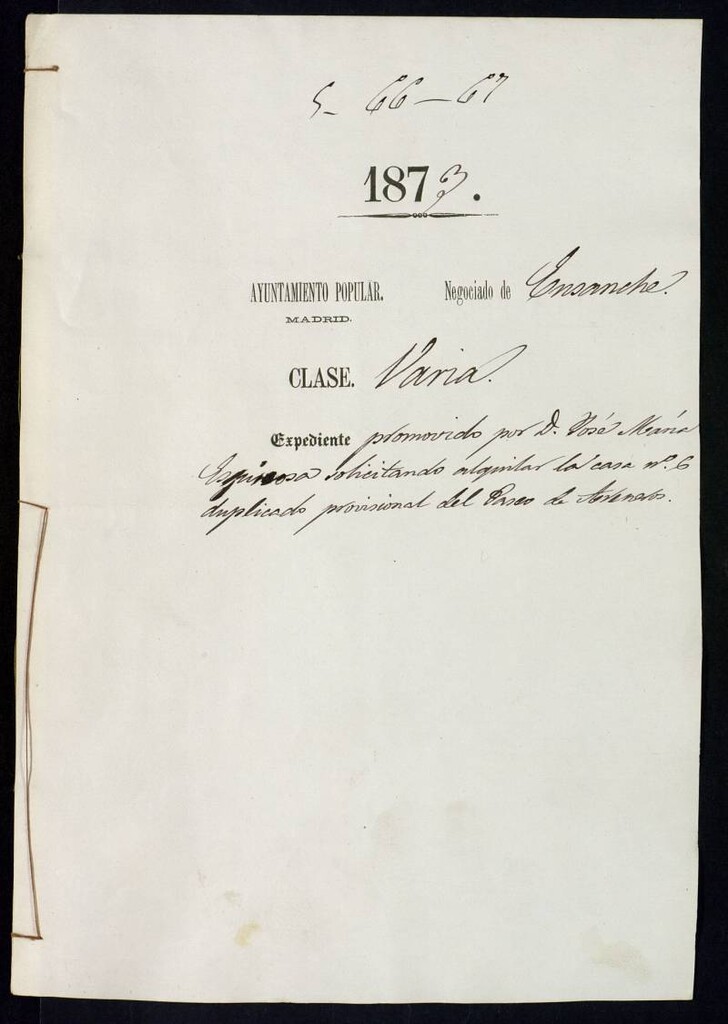 5-66-67
1873.
AYUNTAMIENTO POPULAR. Negociado de Ensanche.
MADRID.
CLASE. Varia.
Expediente promovido por D. José María
Espinosa solicitando alquilar la casa nº. 6
duplicado provisional del Paseo de Areneros.